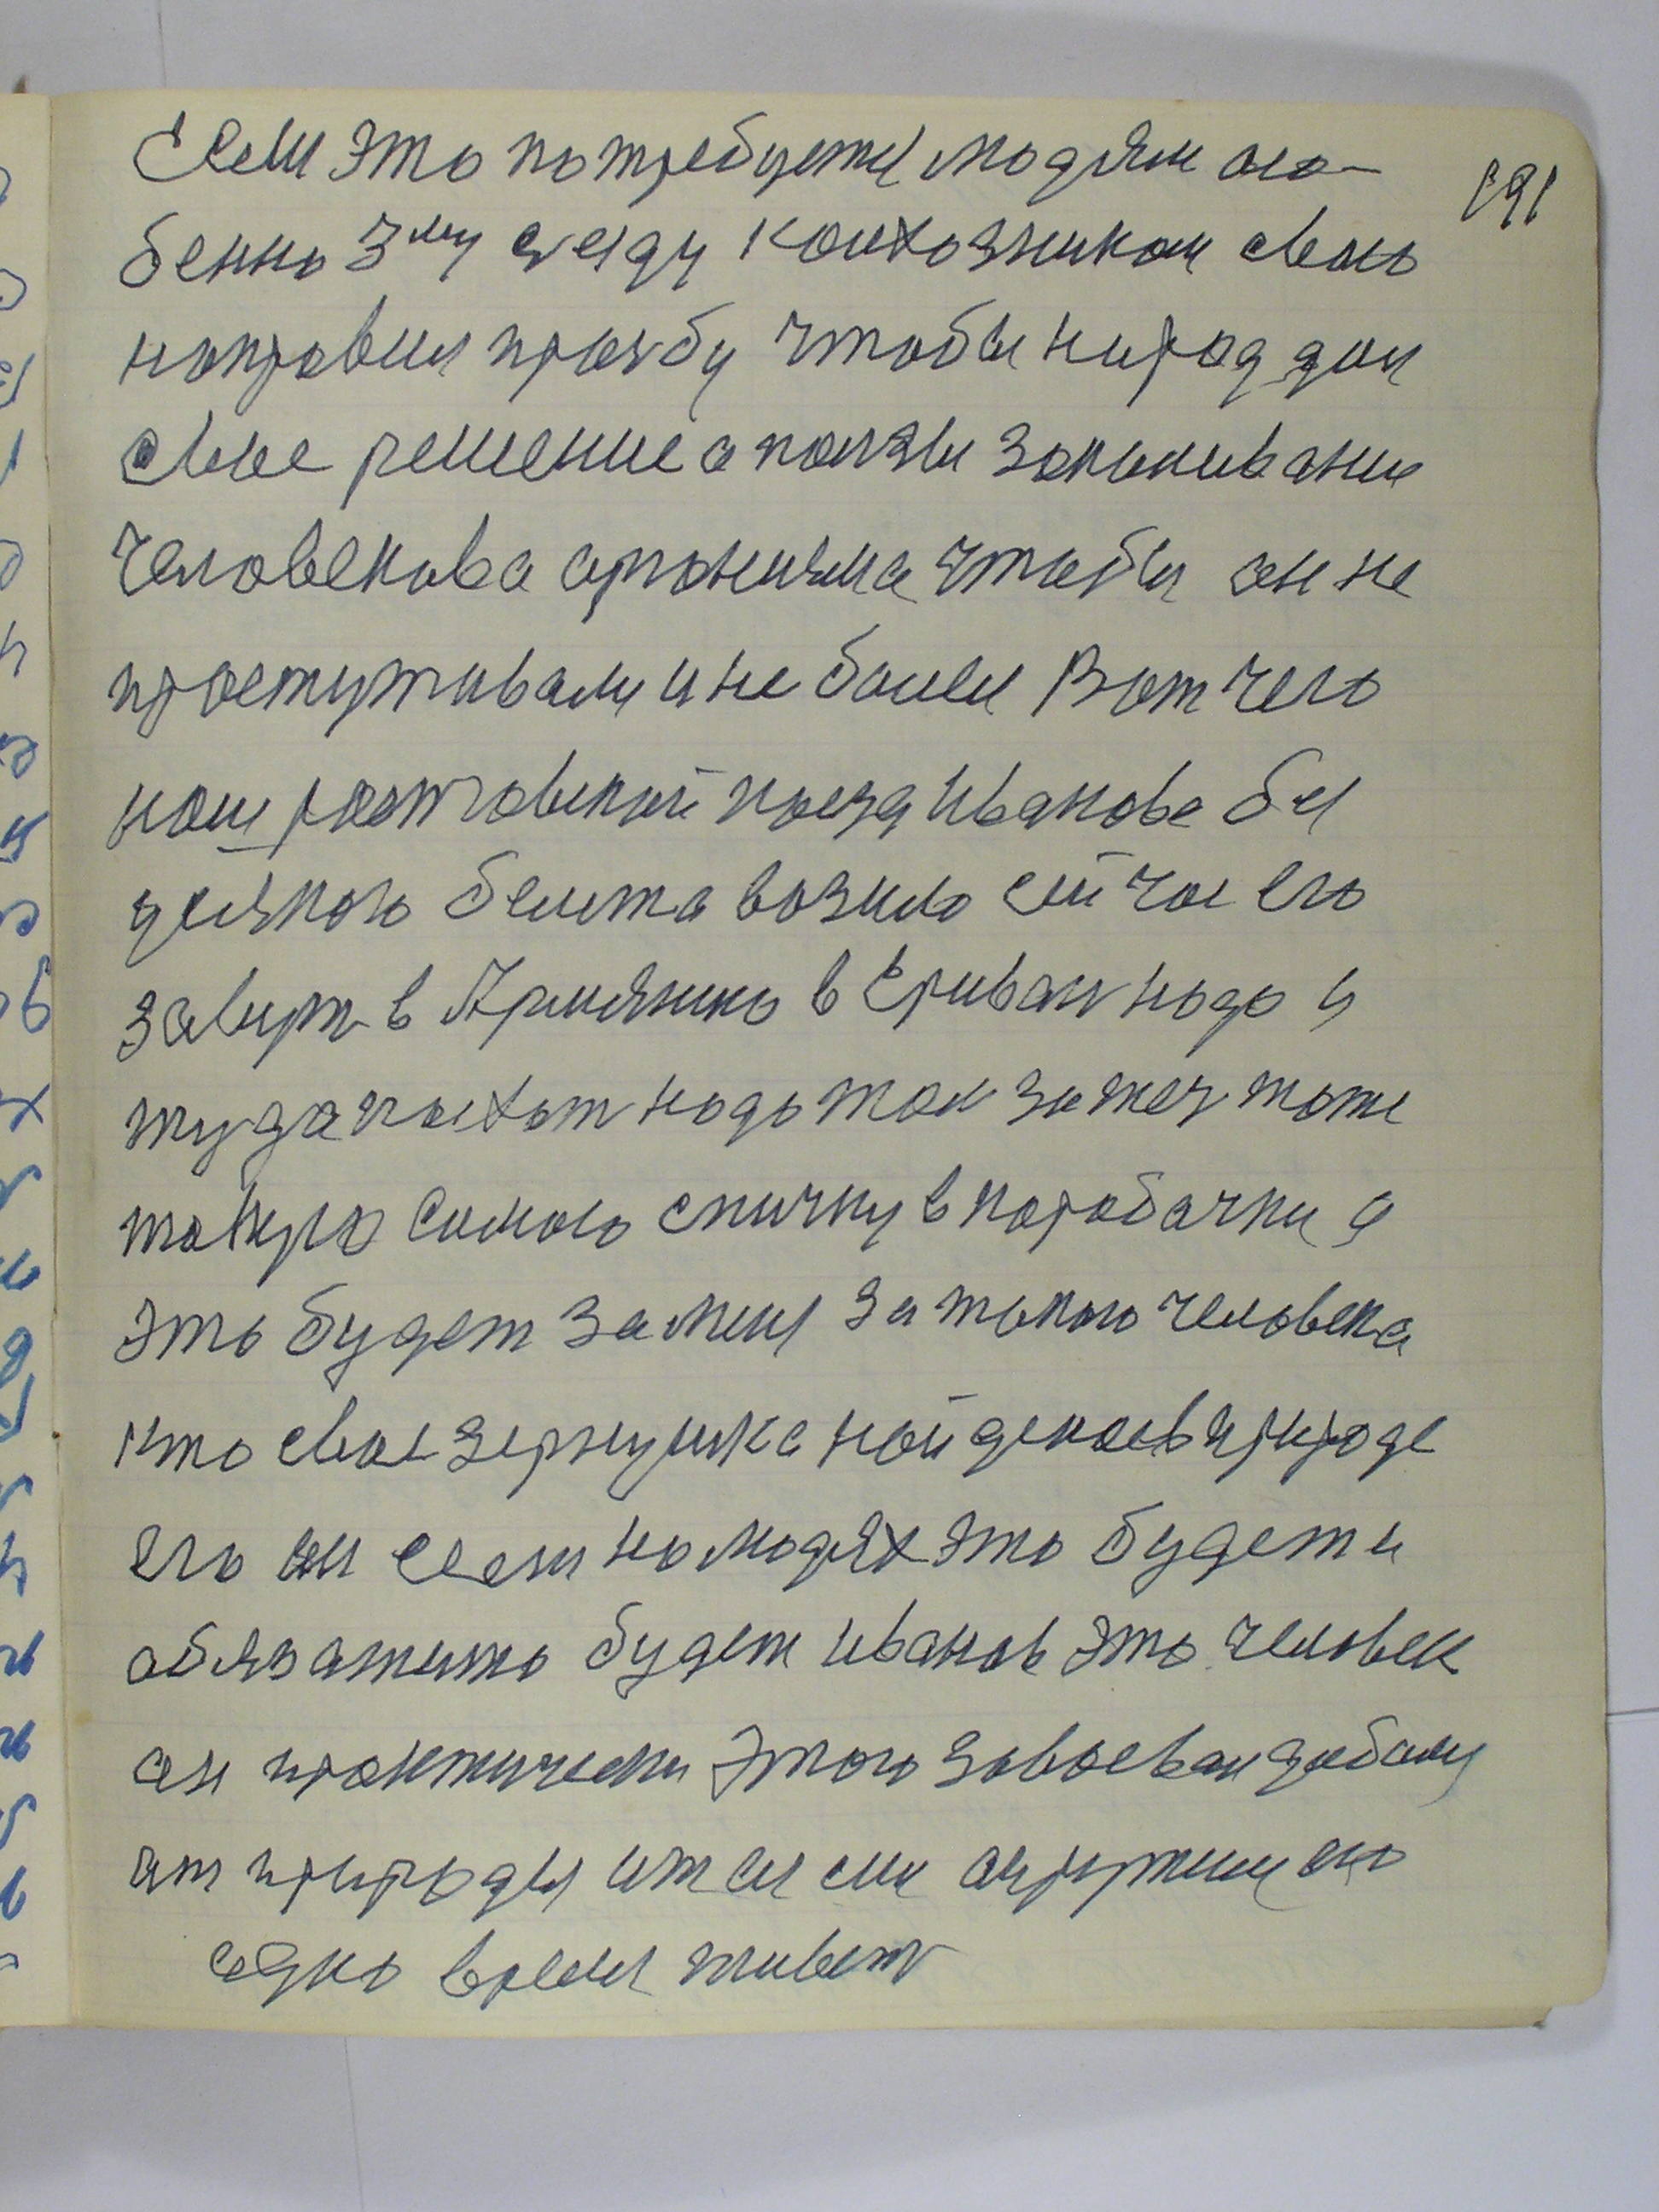 191
Если это потребуется людям осо-
бенно 3му съезду колхозникам свою
направил прозьбу чтобы народ дал
свое решение о пользы закаливание
человекова органызма чтобы он не
простуживалы и не болел Вот чего
наш ростовской поезд Иванова бы
целякого белета возило сийчас его
завут в Армянию в Ериван надо и
туда поихат надо там зажеч тоже
такую самою спичку в коробачки а
это будет замной за такого человека
кто свое зернушка найденое в природе
его он сеял на людях это будет и
обязательно будет Иванов это человек
он практически этого завоевал добилы
от природы и там ему окружило его
одно время живет